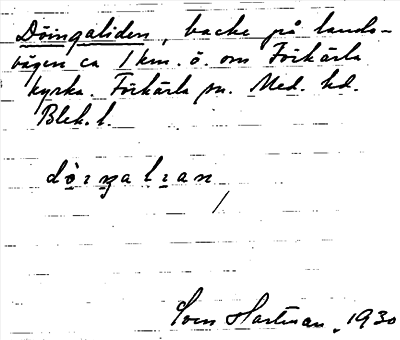 Döingaliden, backe på lands-
vägen ca 1 km. ö. om Förkärla
kyrka. Förkärla sn. Med. hd.
Blek. l.
dòıŋalıan
Sven Hartman, 1930